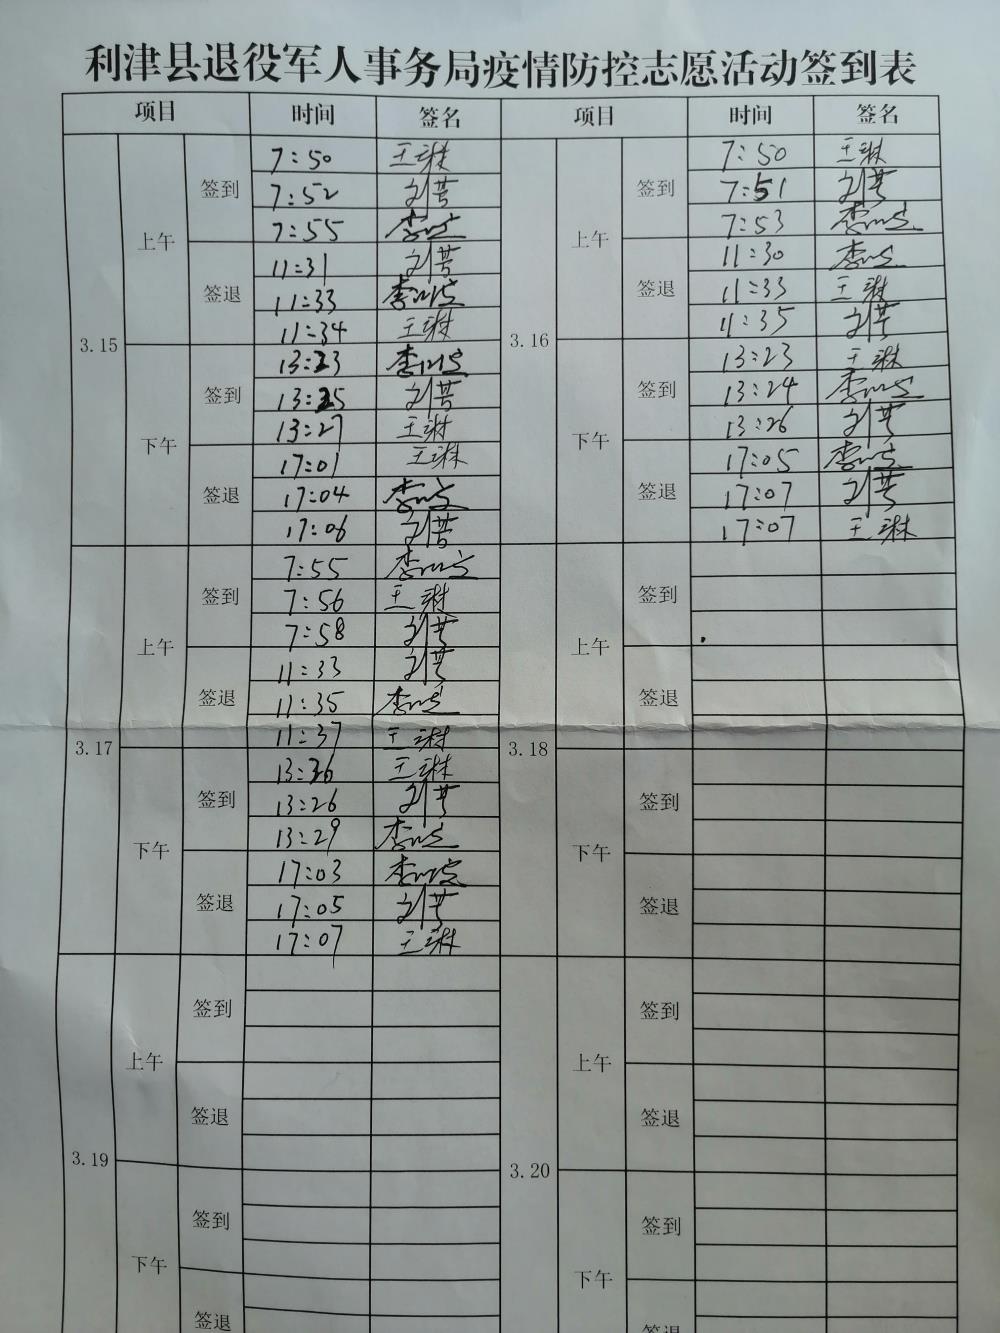 利津县退役军人事务局疫情防控志愿活动签到表
项目 时间 签名 项目 时间 签名
3.15
上午
签到
7:50 王琳
7:52 刘芸
7:55 李
签退
11:31 刘芸
11:33 李
11:34 王琳
下午
签到
13:23 李
13:25 刘芸
13:27 王琳
签退
17:01 王琳
17:04 李
17:06 刘芸
3.16
上午
签到
7:50 王琳
7:51 刘芸
7:53 李
签退
11:30 李
11:33 王琳
11:35 刘芸
下午
签到
13:23 王琳
13:24 李
13:26 刘芸
签退
17:05 李
17:07 刘芸
17:07 王琳
3.17
上午
签到
7:55 李
7:56 王琳
7:58 刘芸
签退
11:33 刘芸
11:35 李
11:37 王琳
下午
签到
13:26 王琳
13:26 刘芸
13:29 李
签退
17:03 李
17:05 刘芸
17:07 王琳
3.18
上午
签到
签退
下午
签到
签退
3.19
上午
签到
签退
下午
签到
签退
3.20
上午
签到
签退
下午
签到
签退